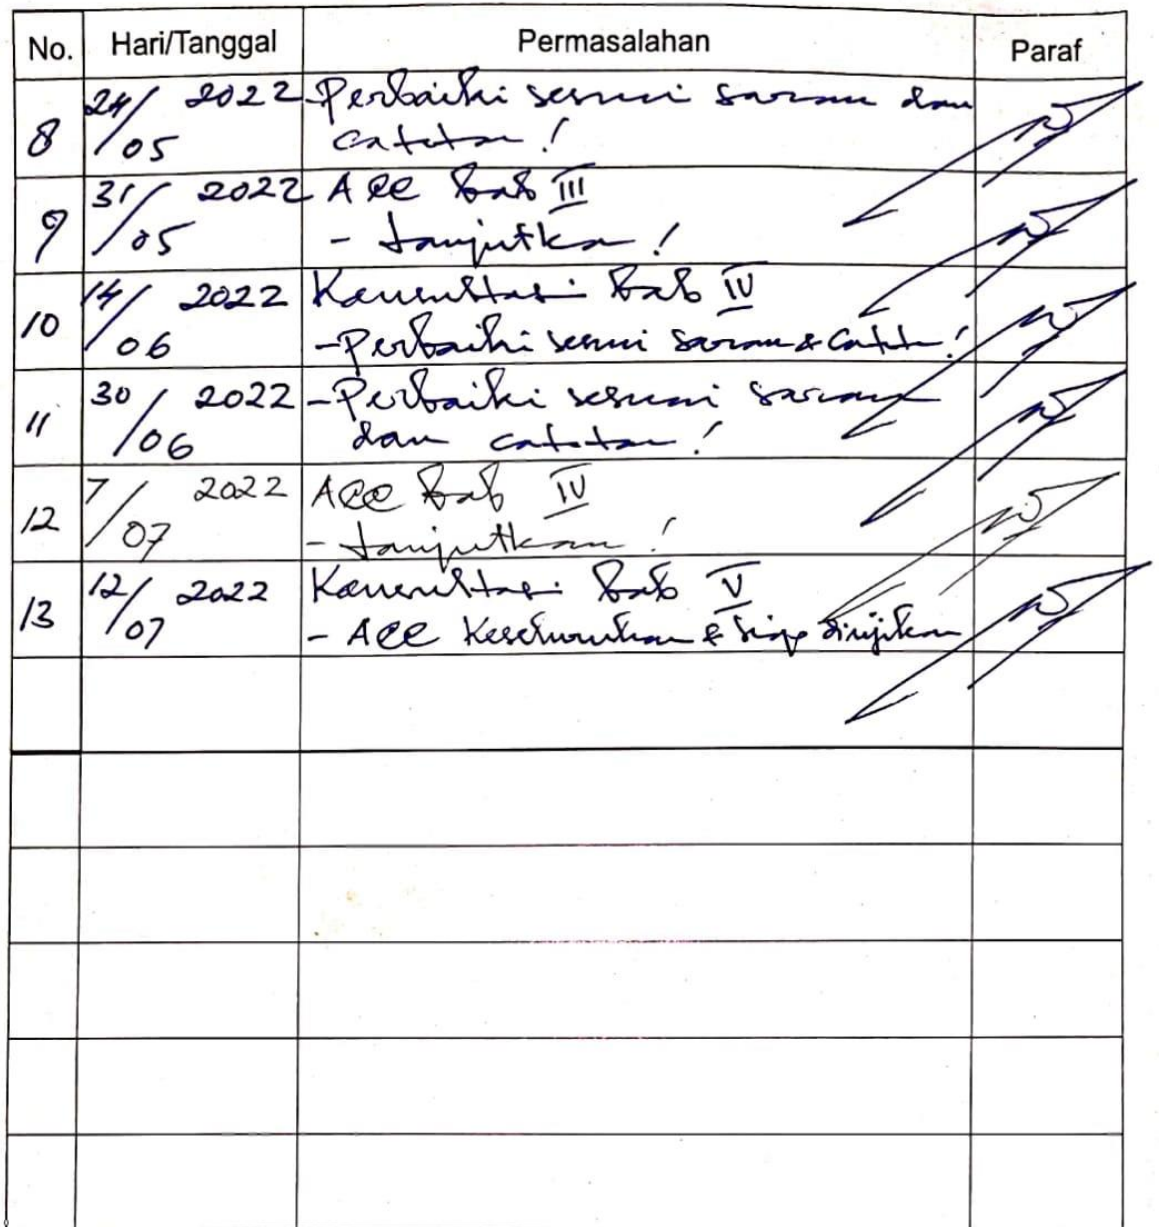 No. Hari/Tanggal Permasalahan Paraf
8 24/05 2022 Perbaiki sesuai saran dan
catatan!
9 31/05 2022 ACC Bab III
- Lanjutkan!
10 14/06 2022 Konsultasi Bab IV
- Perbaiki sesuai saran & catatan!
11 30/06 2022 - Perbaiki sesuai saran
dan catatan!
12 7/07 2022 ACC Bab IV
- Lanjutkan!
13 12/07 2022 Konsultasi Bab V
- ACC Keseluruhan & siap diujikan